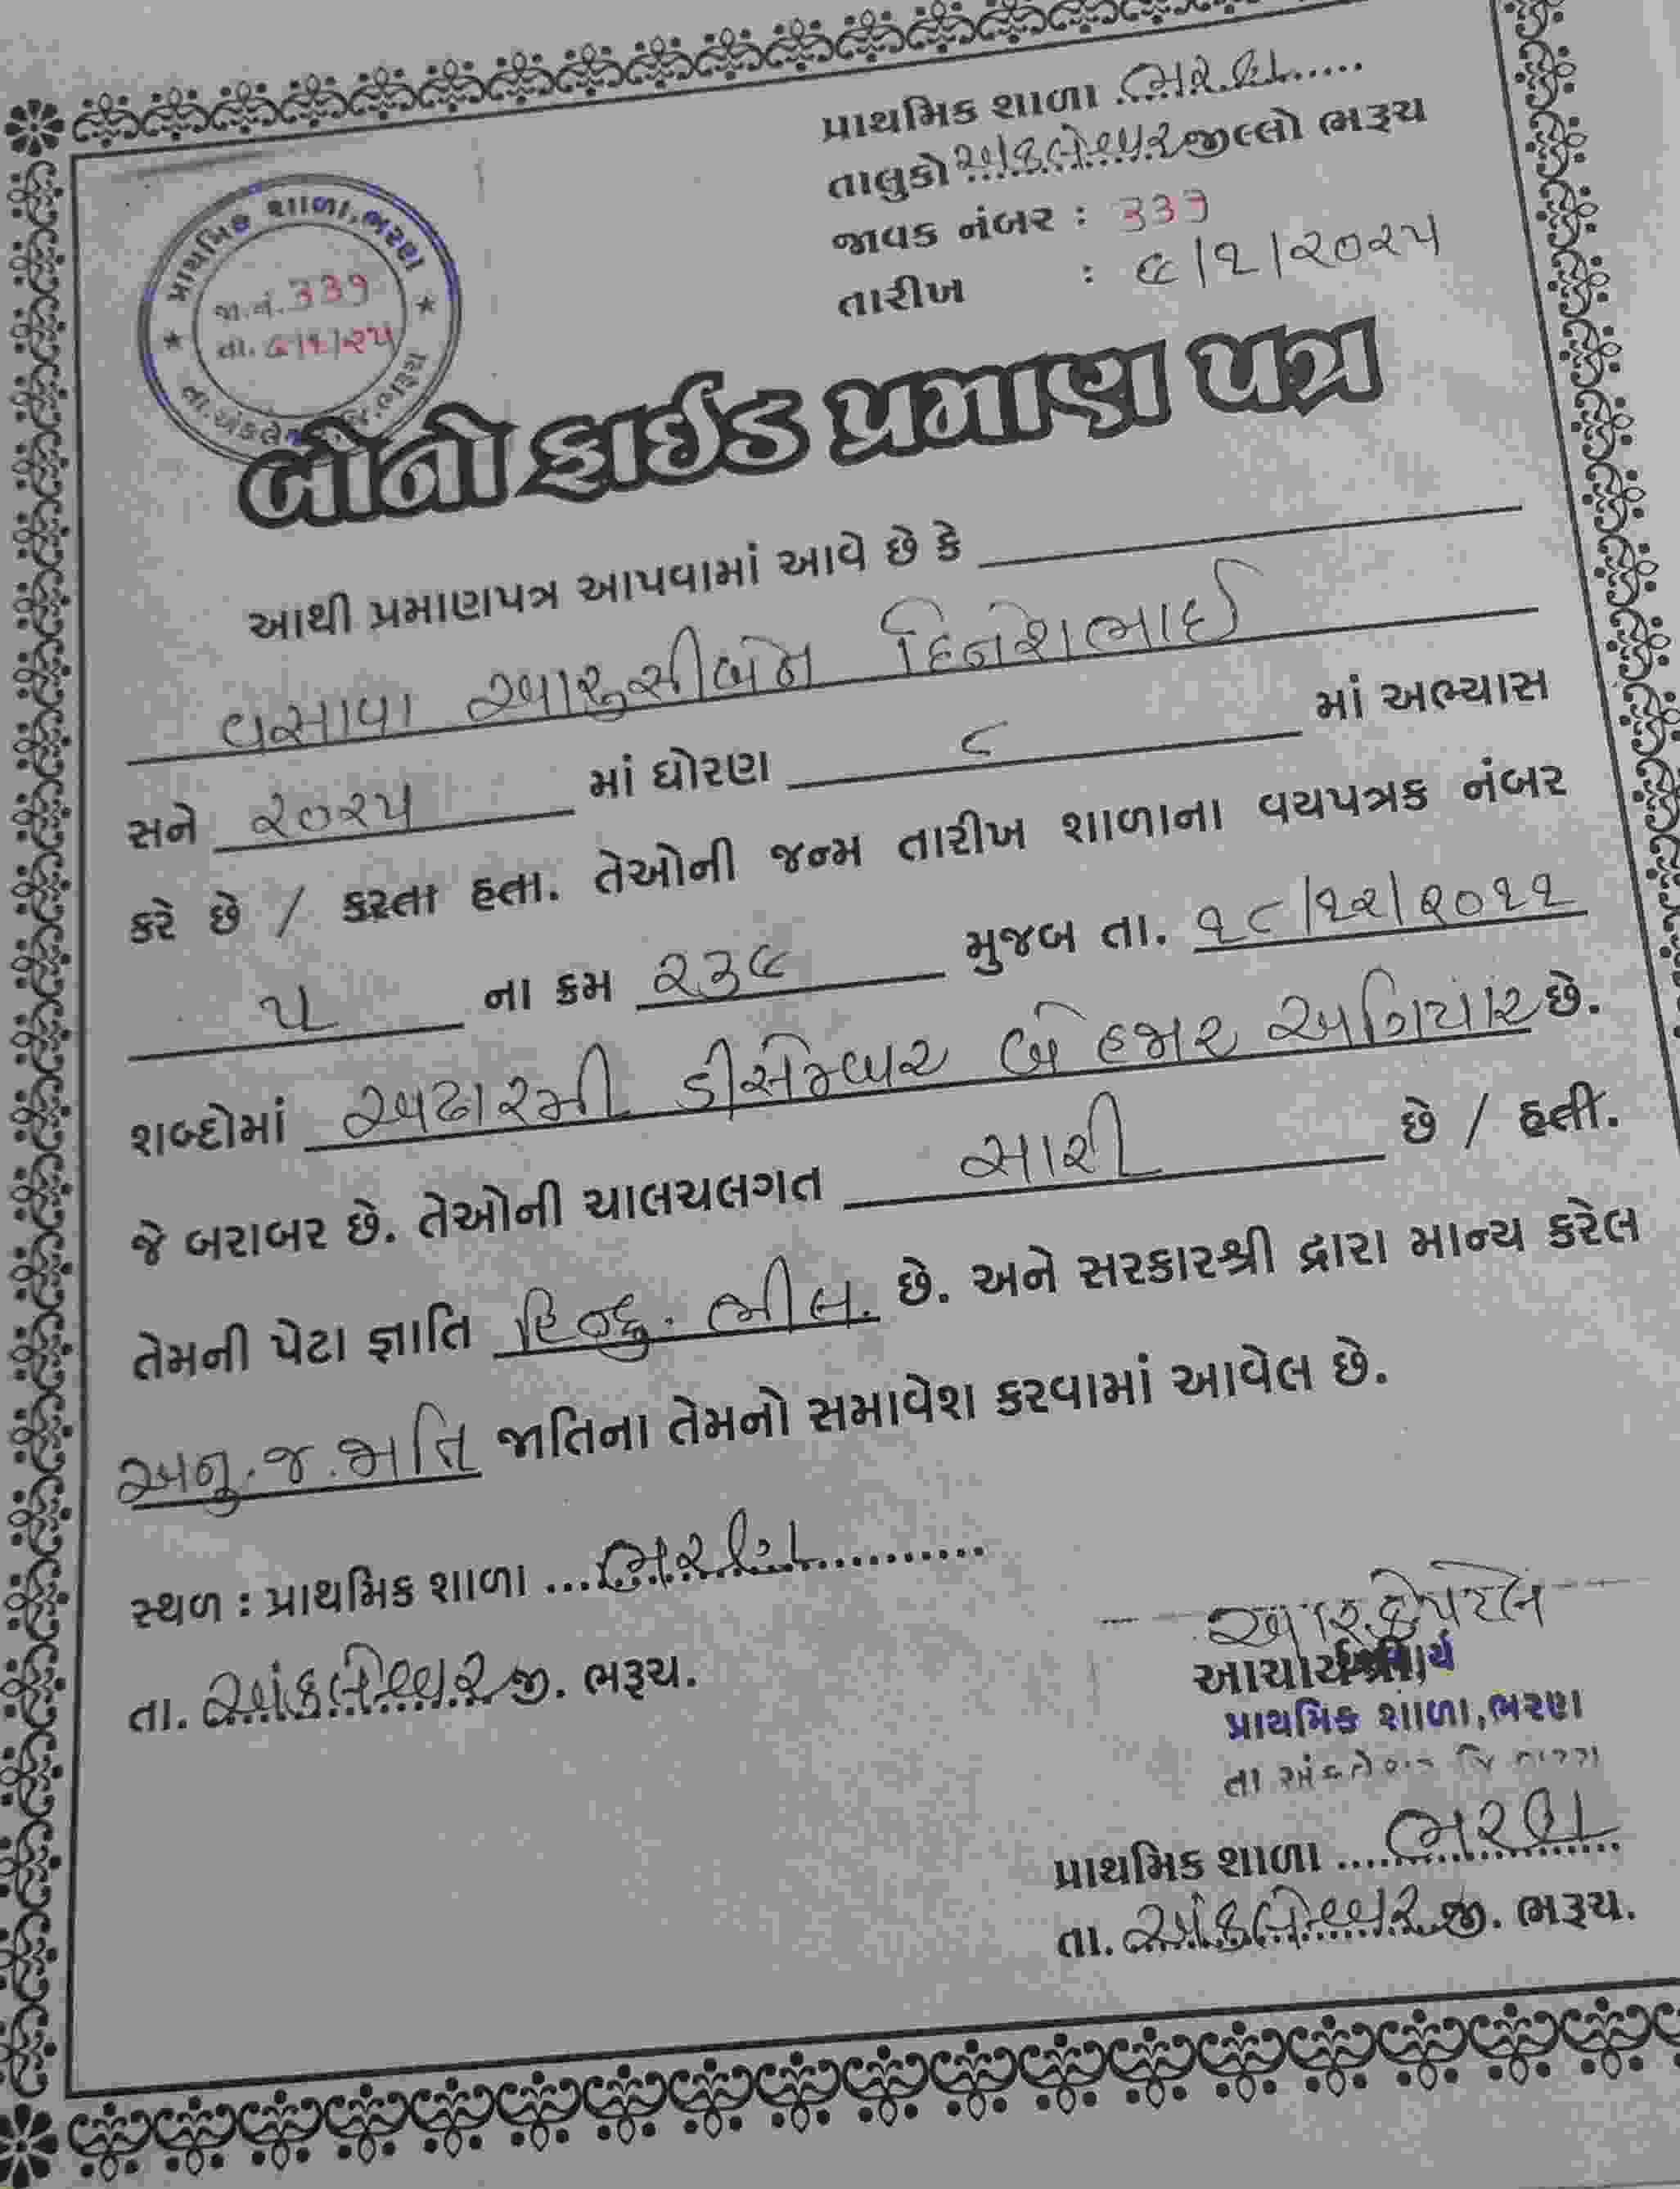 પ્રાથમિક શાળા ભરણ
તાલુકો અંકલેશ્વર જીલ્લો ભરૂચ
જાવક નંબર : ૩૩૧
તારીખ : ૯/૧/૨૦૨૫
પ્રાથમિક શાળા, ભરણ
જા.નં. ૩૩૧
તા. ૯/૧/૨૫
બોનોફાઈડ પ્રમાણ પત્ર
આથી પ્રમાણપત્ર આપવામાં આવે છે કે
વસાવા આરુસીબેન દિનેશભાઈ
સને ૨૦૨૫ માં ધોરણ ૮ માં અભ્યાસ
કરે છે / કરતા હતા. તેઓની જન્મ તારીખ શાળાના વયપત્રક નંબર
૫ ના ક્રમ ૨૩૯ મુજબ તા. ૧૮/૧૨/૨૦૧૧
શબ્દોમાં અઢારમી ડીસેમ્બર બે હજાર અગિયાર છે.
જે બરાબર છે. તેઓની ચાલચલગત સારી છે / હતી.
તેમની પેટા જ્ઞાતિ હિન્દુ. ભીલ. છે. અને સરકારશ્રી દ્વારા માન્ય કરેલ
અનુ.જ.જાતિ જાતિના તેમનો સમાવેશ કરવામાં આવેલ છે.
સ્થળ : પ્રાથમિક શાળા ભરણ
તા. અંકલેશ્વર જી. ભરૂચ.
આર.કે.પટેલ
આચાર્યશ્રી,
પ્રાથમિક શાળા,ભરણ
પ્રાથમિક શાળા ભરણ
તા. અંકલેશ્વર જી. ભરૂચ.